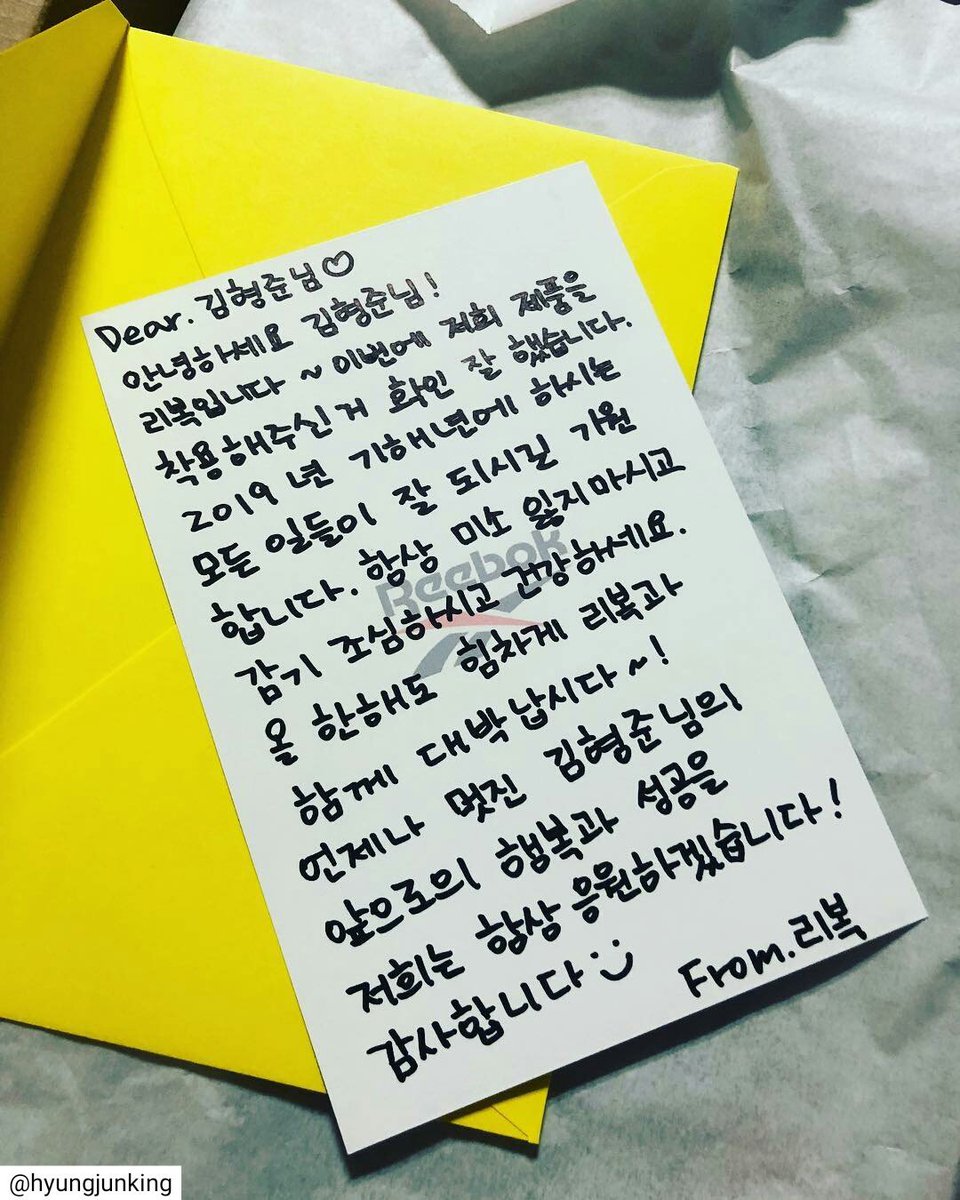 Dear. 김형준님♡
안녕하세요 김형준님!
리복입니다 ~ 이번에 저희 제품을
착용해주신 거 확인 잘 했습니다.
2019년 기해년에 하시는
모든 일들이 잘 되시길 기원
합니다. 항상 미소 잃지마시고
감기 조심하시고 건강하세요.
올 한해도 힘차게 리복과
함께 대박납시다~!
언제나 멋진 김형준님의
앞으로의 행복과 성공을
저희는 항상 응원하겠습니다!
감사합니다 :)
From. 리복
Reebok
@hyungjunking